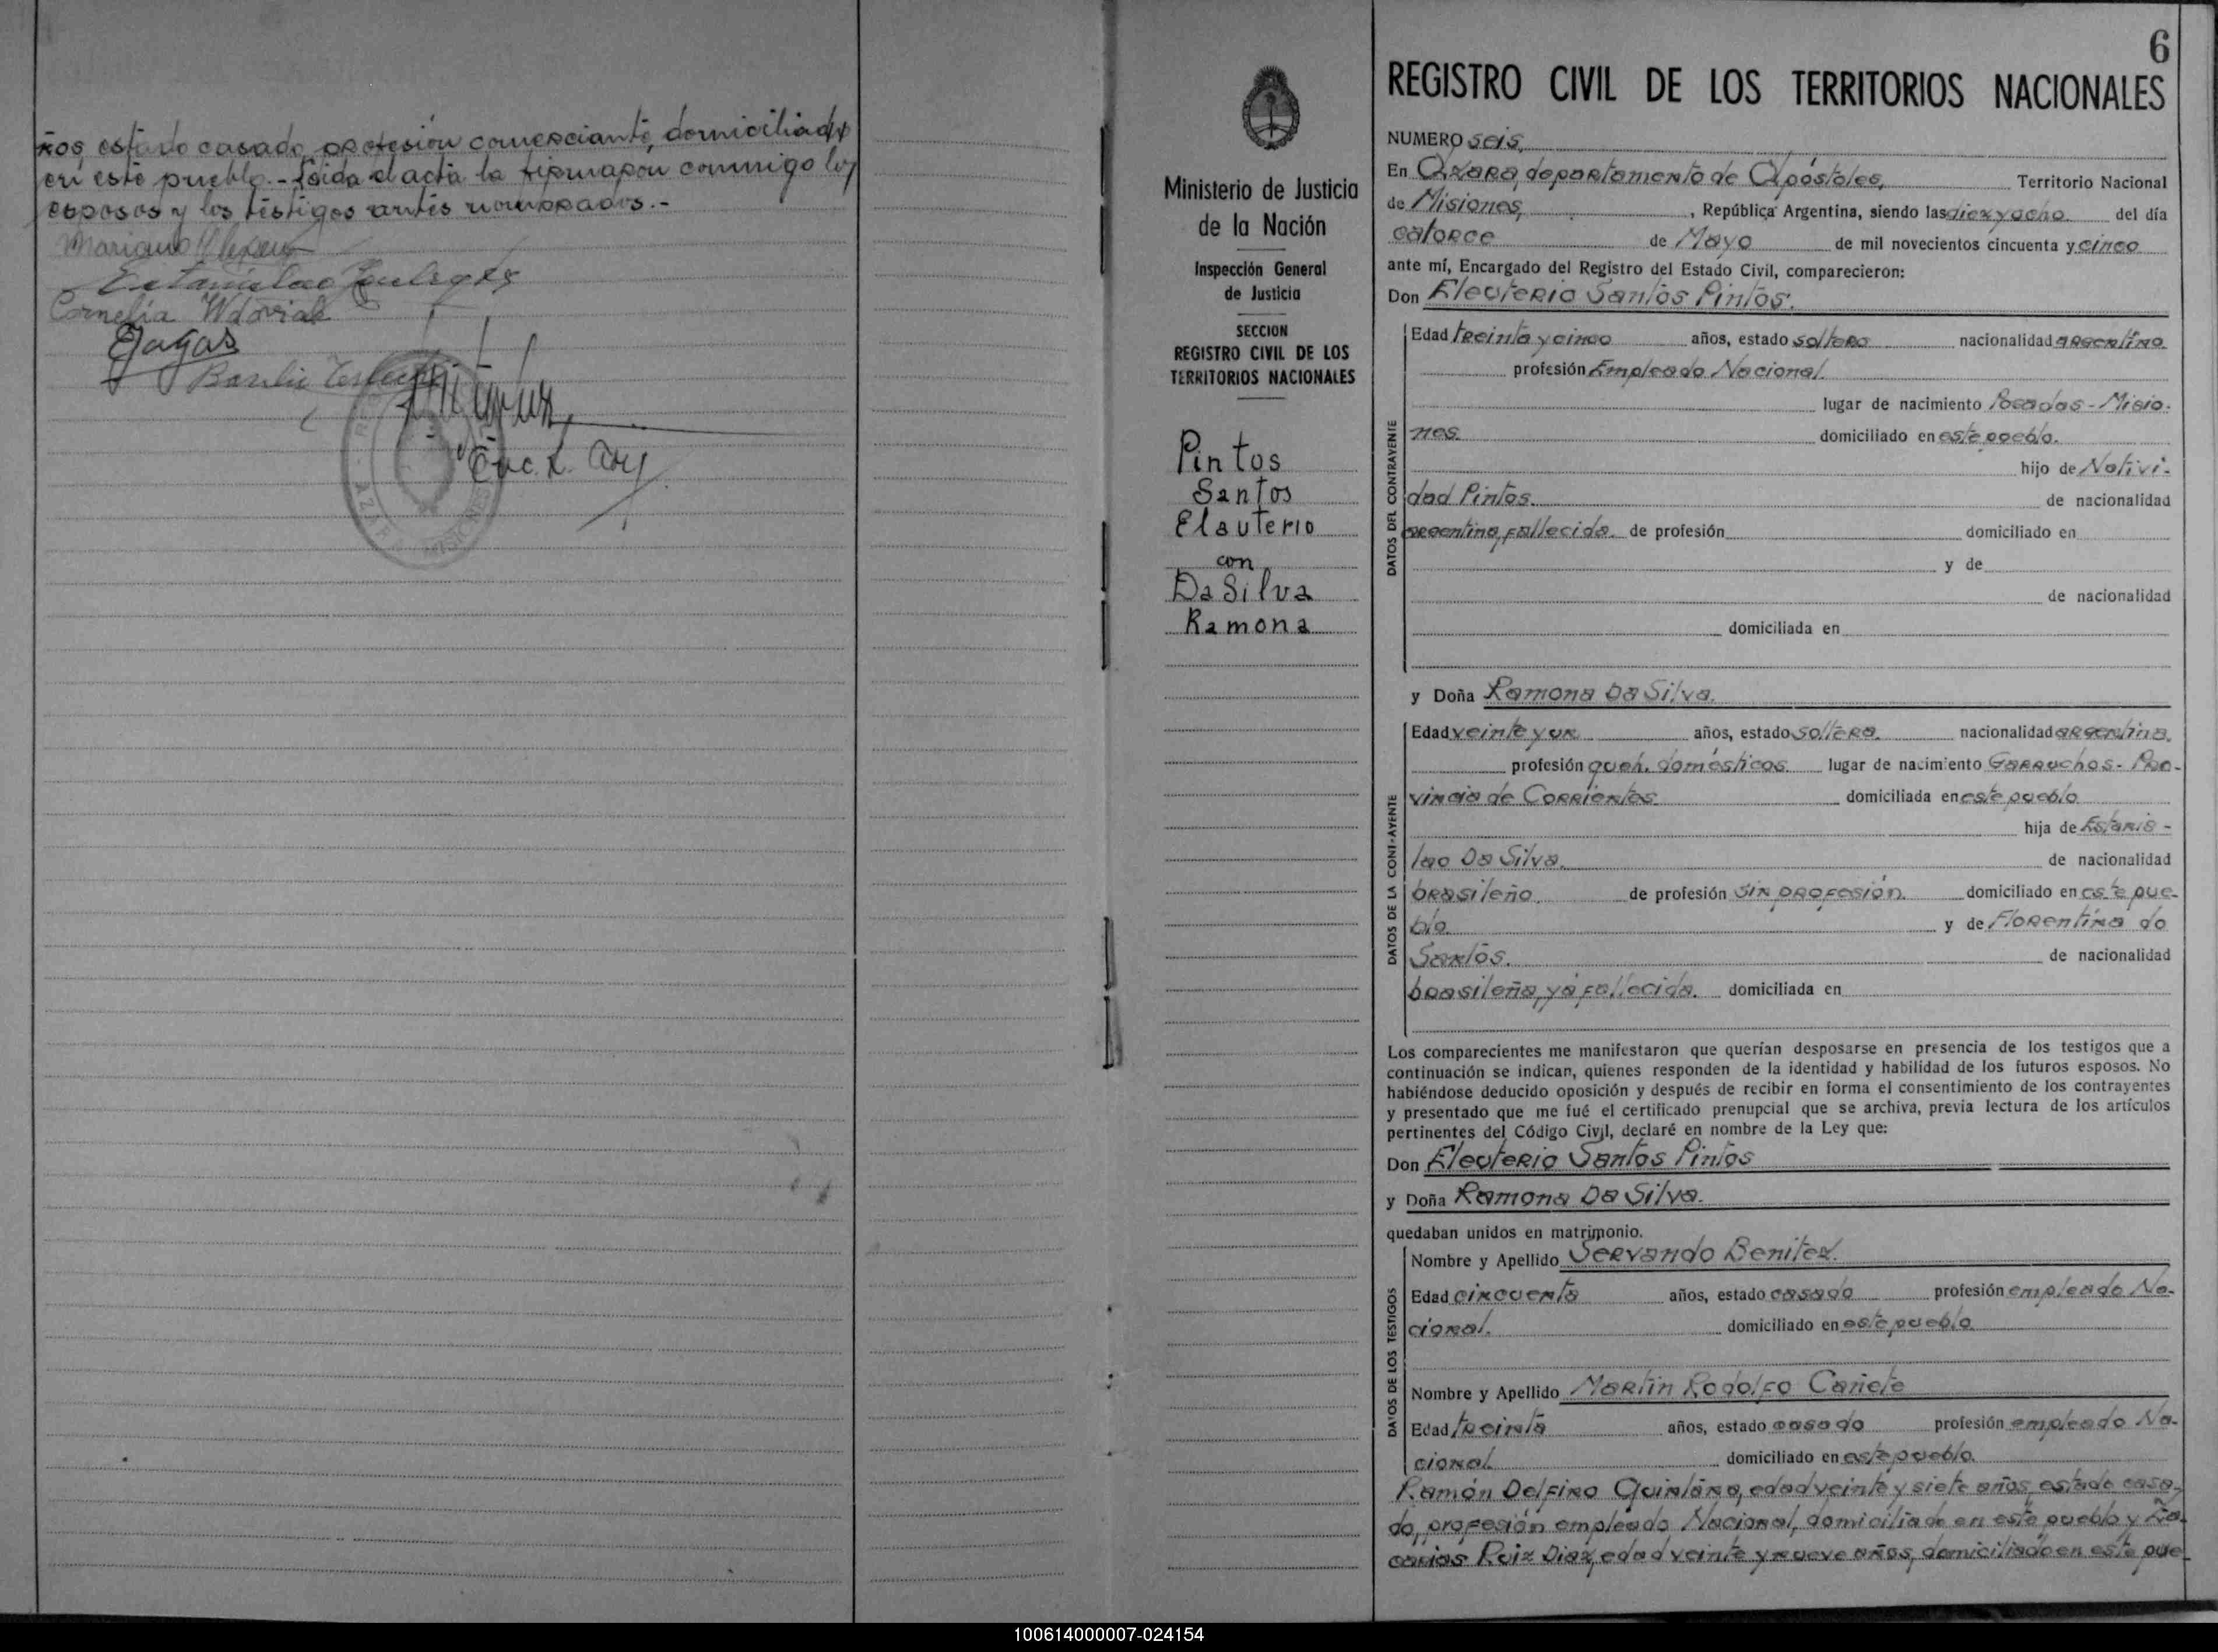 ños, estado casado, profesión comerciante, domiciliados
en este pueblo.- Leida el acta la firmaron conmigo los
esposos y los testigos antes nombrados.-
Mariano
Estanislao
Cornelia Wdoviak
Basilio
Enc. R. Civ
6
REGISTRO CIVIL DE LOS TERRITORIOS NACIONALES
Ministerio de Justicia
de la Nación
Inspección General
de Justicia
SECCION
REGISTRO CIVIL DE LOS
TERRITORIOS NACIONALES
Pintos
Santos
Elauterio
con
Da Silva
Ramona
NUMERO seis.
En Azara, departamento de Apóstoles, Territorio Nacional
de Misiones, , República Argentina, siendo las diez y ocho del día
catorce de Mayo de mil novecientos cincuenta y cinco
ante mí, Encargado del Registro del Estado Civil, comparecieron:
Don Eleuterio Santos Pintos.
DATOS DEL CONTRAYENTE
Edad treinta y cinco años, estado soltero nacionalidad argentino
profesión Empleado Nacional.
lugar de nacimiento Posadas - Misio-
nes. domiciliado en este pueblo.
hijo de Nativi-
dad Pintos. de nacionalidad
argentina, fallecida. de profesión domiciliado en
y de
de nacionalidad
domiciliada en
y Doña Ramona Da Silva.
DATOS DE LA CONTRAYENTE
Edad veinte y un años, estado soltera. nacionalidad argentina.
profesión queh. domésticos. lugar de nacimiento Garruchos - Pro-
vincia de Corrientes. domiciliada en este pueblo
hija de Estanis-
lao Da Silva. de nacionalidad
brasileño. de profesión sin profesión. domiciliado en este pue-
blo. y de Florentina do
Santos. de nacionalidad
brasileña, ya fallecida. domiciliada en
Los comparecientes me manifestaron que querían desposarse en presencia de los testigos que a
continuación se indican, quienes responden de la identidad y habilidad de los futuros esposos. No
habiéndose deducido oposición y después de recibir en forma el consentimiento de los contrayentes
y presentado que me fué el certificado prenupcial que se archiva, previa lectura de los artículos
pertinentes del Código Civil, declaré en nombre de la Ley que:
Don Eleuterio Santos Pintos
y Doña Ramona Da Silva.
quedaban unidos en matrimonio.
DATOS DE LOS TESTIGOS
Nombre y Apellido Servando Benitez.
Edad cincuenta años, estado casado profesión empleado Na-
cional. domiciliado en este pueblo.
Nombre y Apellido Martin Rodolfo Cañete
Edad treinta años, estado casado profesión empleado Na-
cional. domiciliado en este pueblo.
Ramón Delfino Quintana, edad veinte y siete años, estado casa-
do, profesión empleado Nacional, domiciliado en este pueblo y Za-
carias Ruiz Diaz, edad veinte y nueve años, domiciliado en este pue-
100614000007-024154